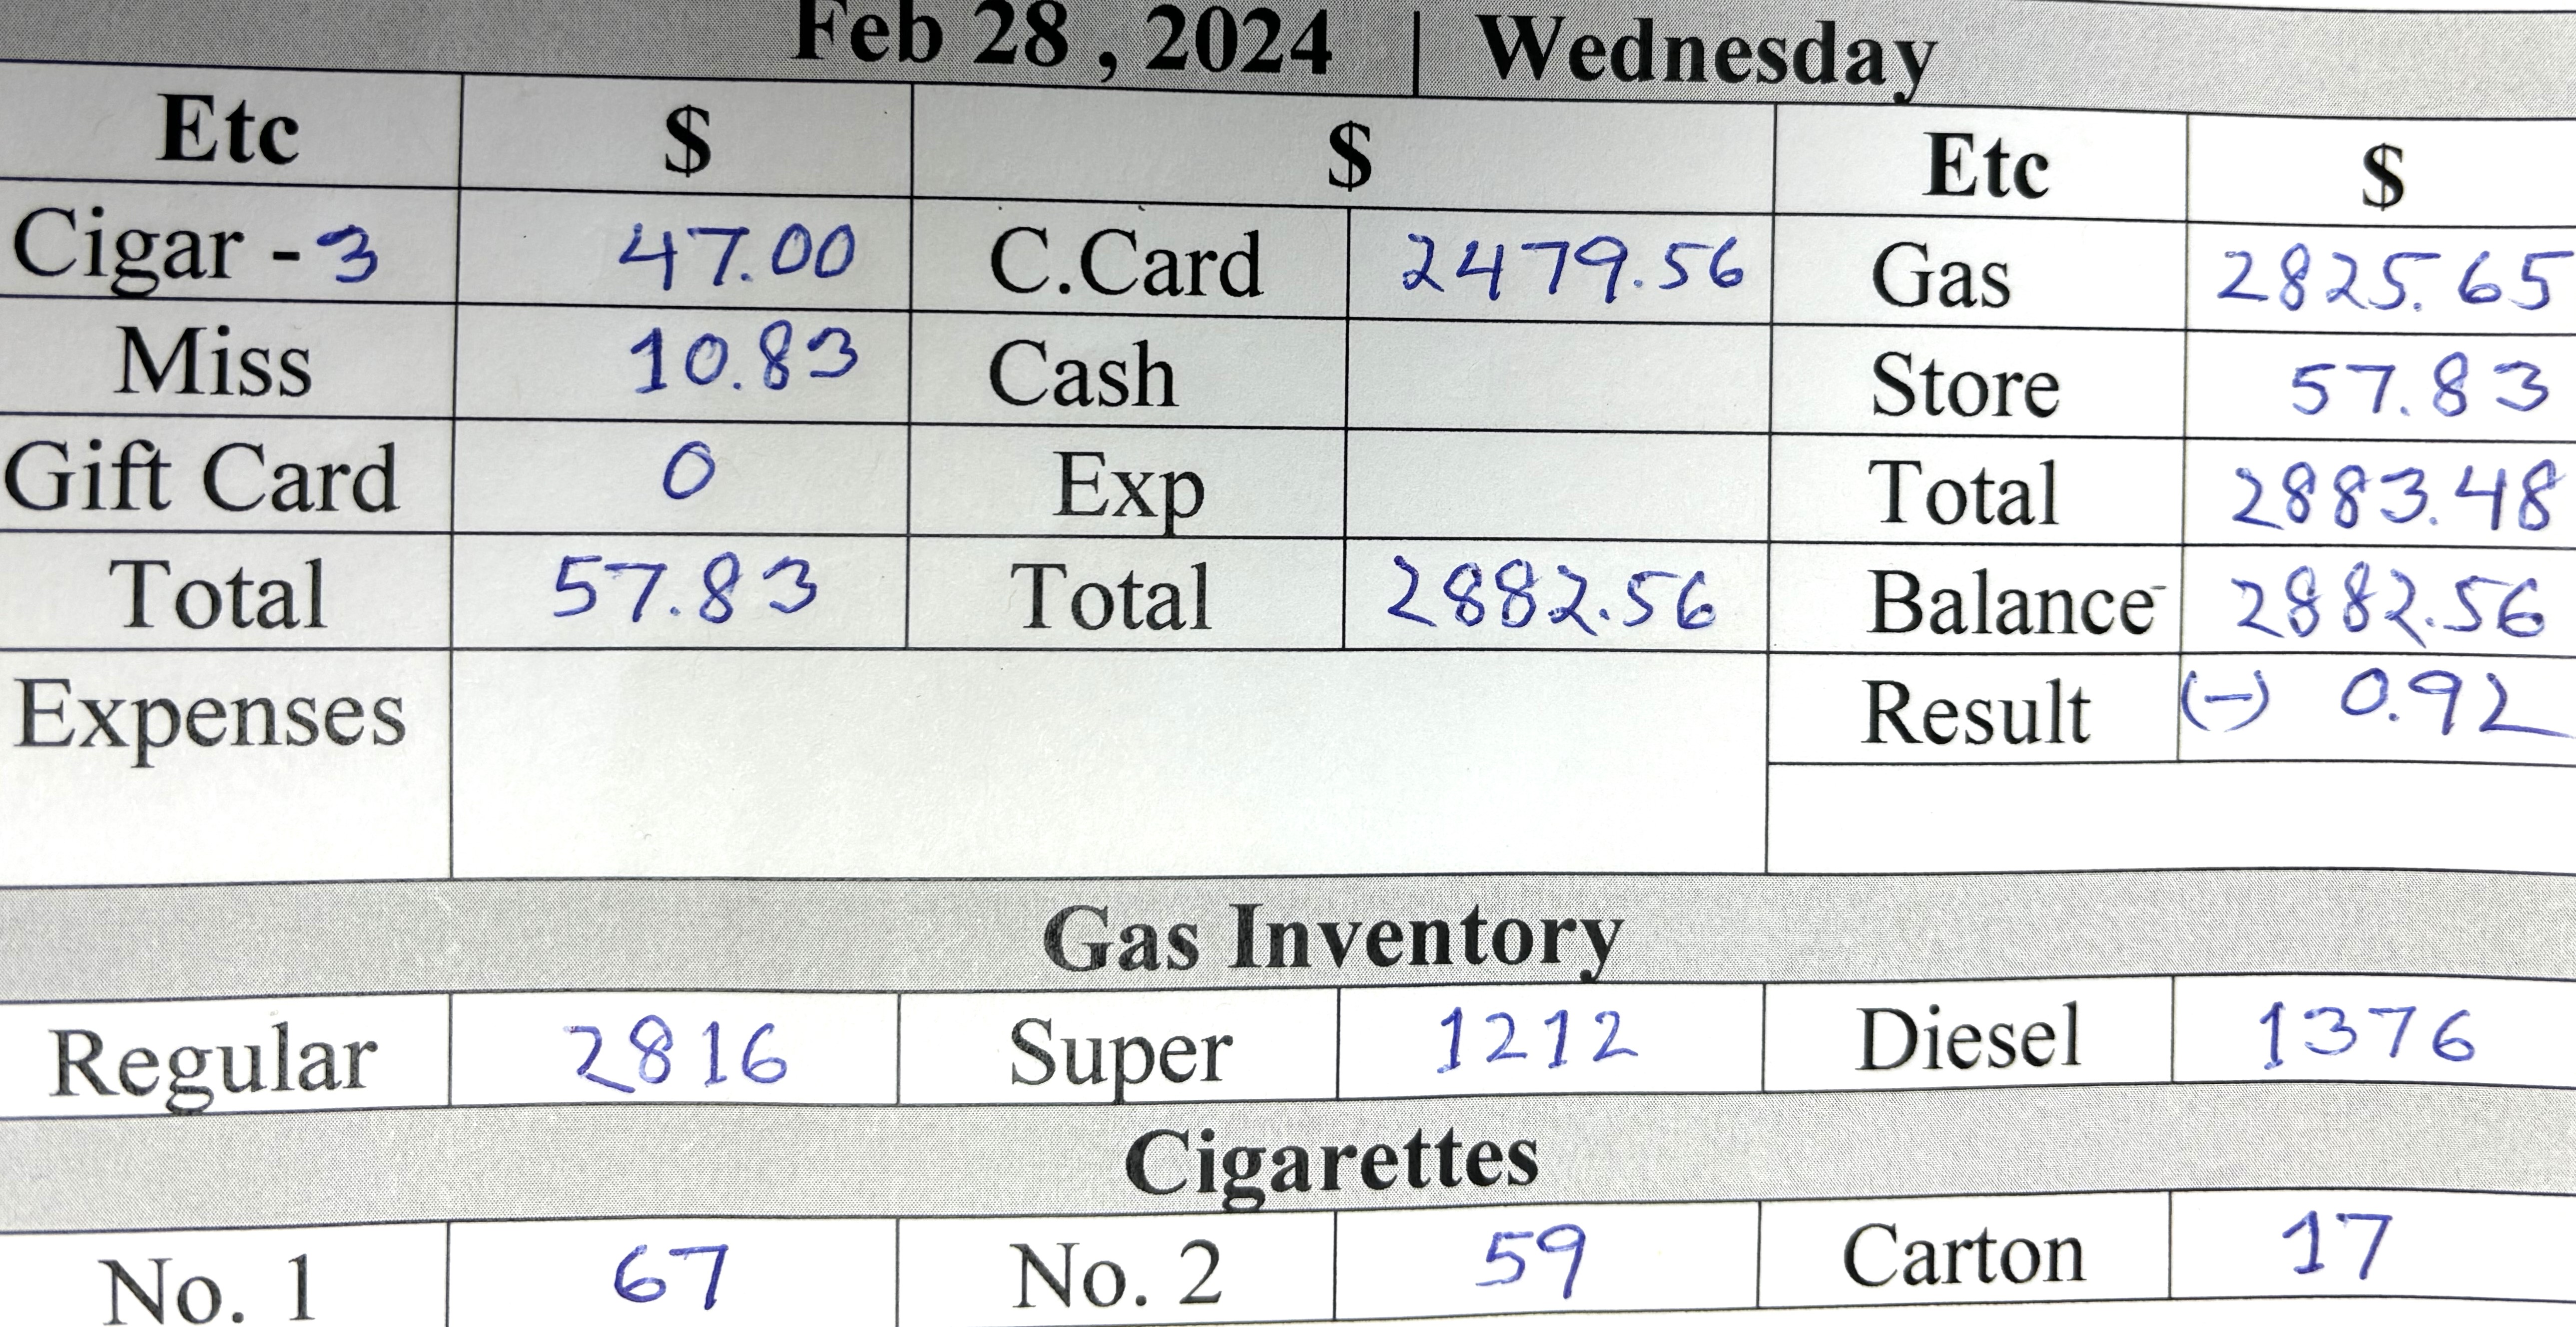 Feb 28 , 2024 | Wednesday
Etc $ $ Etc $
Cigar - 3 47.00 C.Card 2479.56 Gas 2825.65
Miss 10.83 Cash Store 57.83
Gift Card 0 Exp Total 2883.48
Total 57.83 Total 2882.56 Balance- 2882.56
Expenses Result (-) 0.92
Gas Inventory
Regular 2816 Super 1212 Diesel 1376
Cigarettes
No. 1 67 No. 2 59 Carton 17